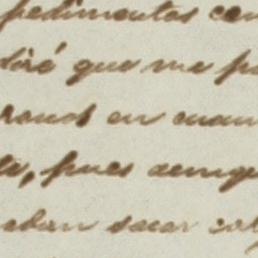 pedimentos con
diré que me p
ranos en cuan
te, pues aunqu
aban sacar col